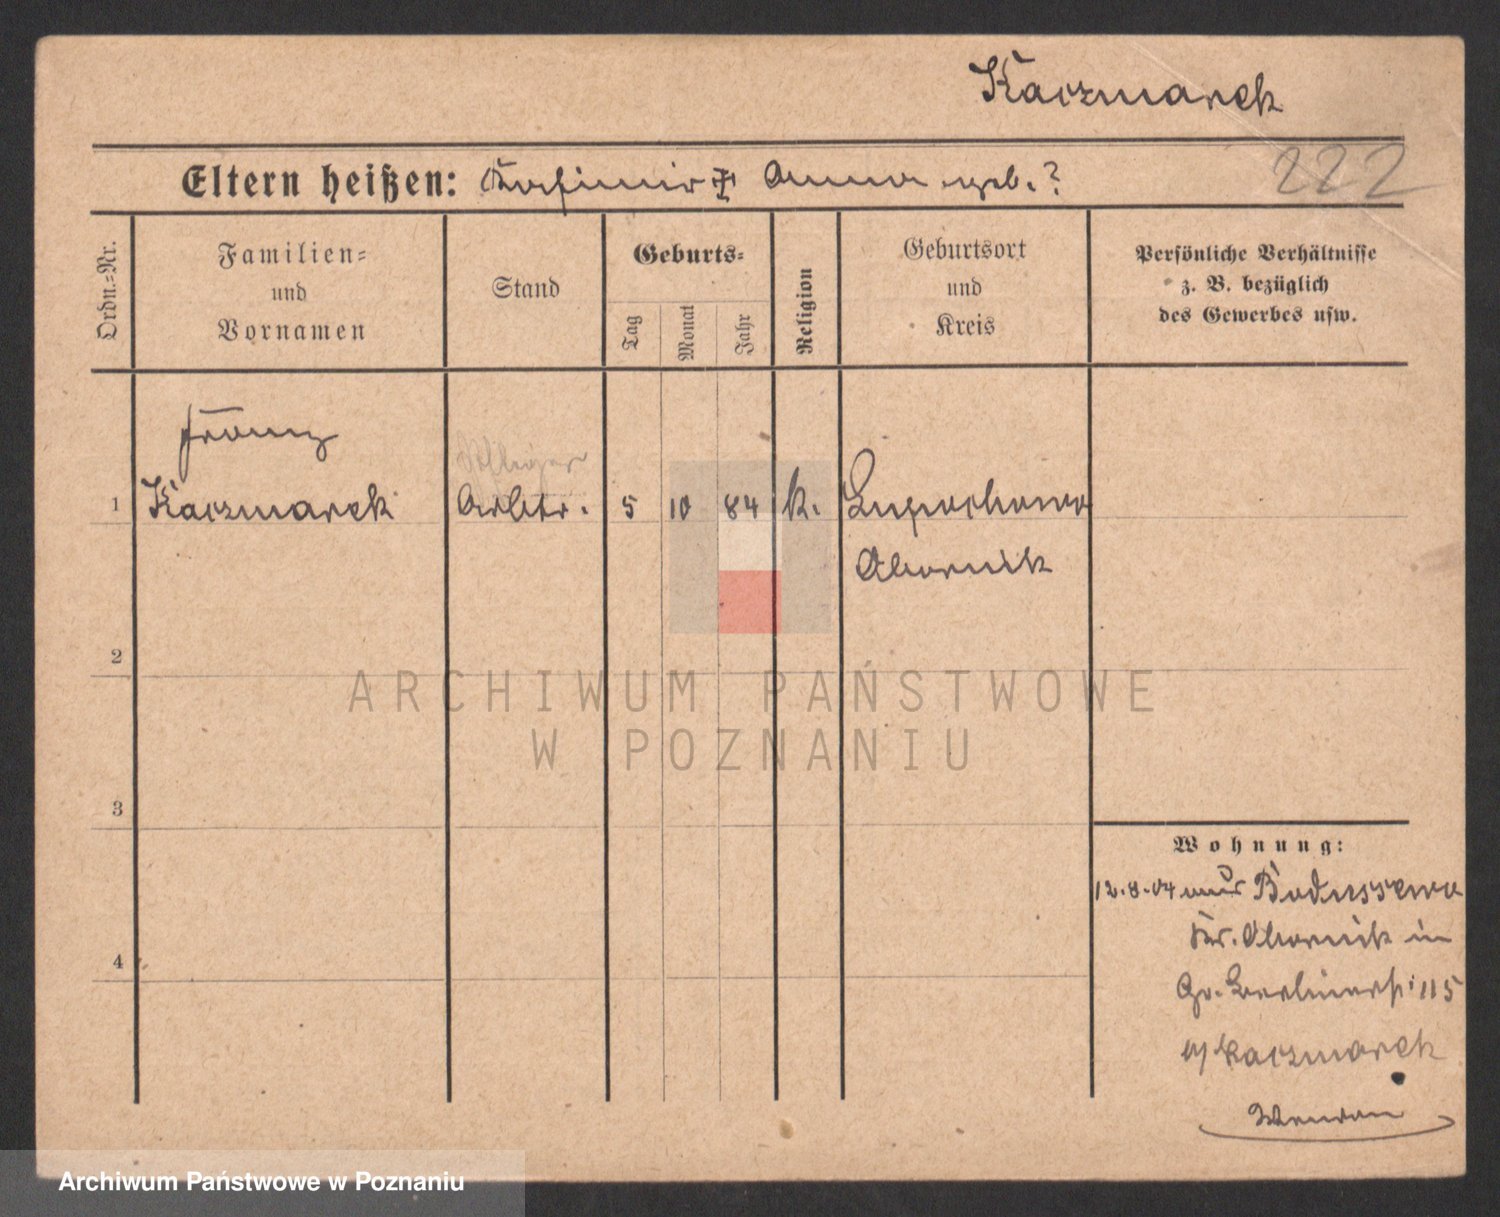 Kaczmarek
Eltern heißen: Kasimir Anna geb. ?
222
Ordn.-Nr.
Familien-
und
Vornamen
Stand
Geburts-
Tag
Monat
Jahr
Religion
Geburtsort
und
Kreis
Persönliche Verhältnisse
z. B. bezüglich
des Gewerbes usw.
Franz
1 Kaczmarek Arbtr. 5 10 84 k.
Obornik
2
ARCHIWUM PAŃSTWOWE
W POZNANIU
3
Wohnung:
12.8.04 Boduszewo
4
Kr. Obornik in
Gr. Berlinerst. 115
b/ Kaczmarek
Archiwum Państwowe w Poznaniu